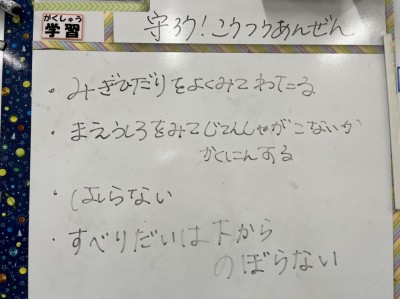 がくしゅう
学習
守ろう!こうつうあんぜん
・みぎひだりをよくみてわたる
・まえうしろをみてじてんしゃがこないか
かくにんする
・はしらない
・すべりだいは下から
のぼらない